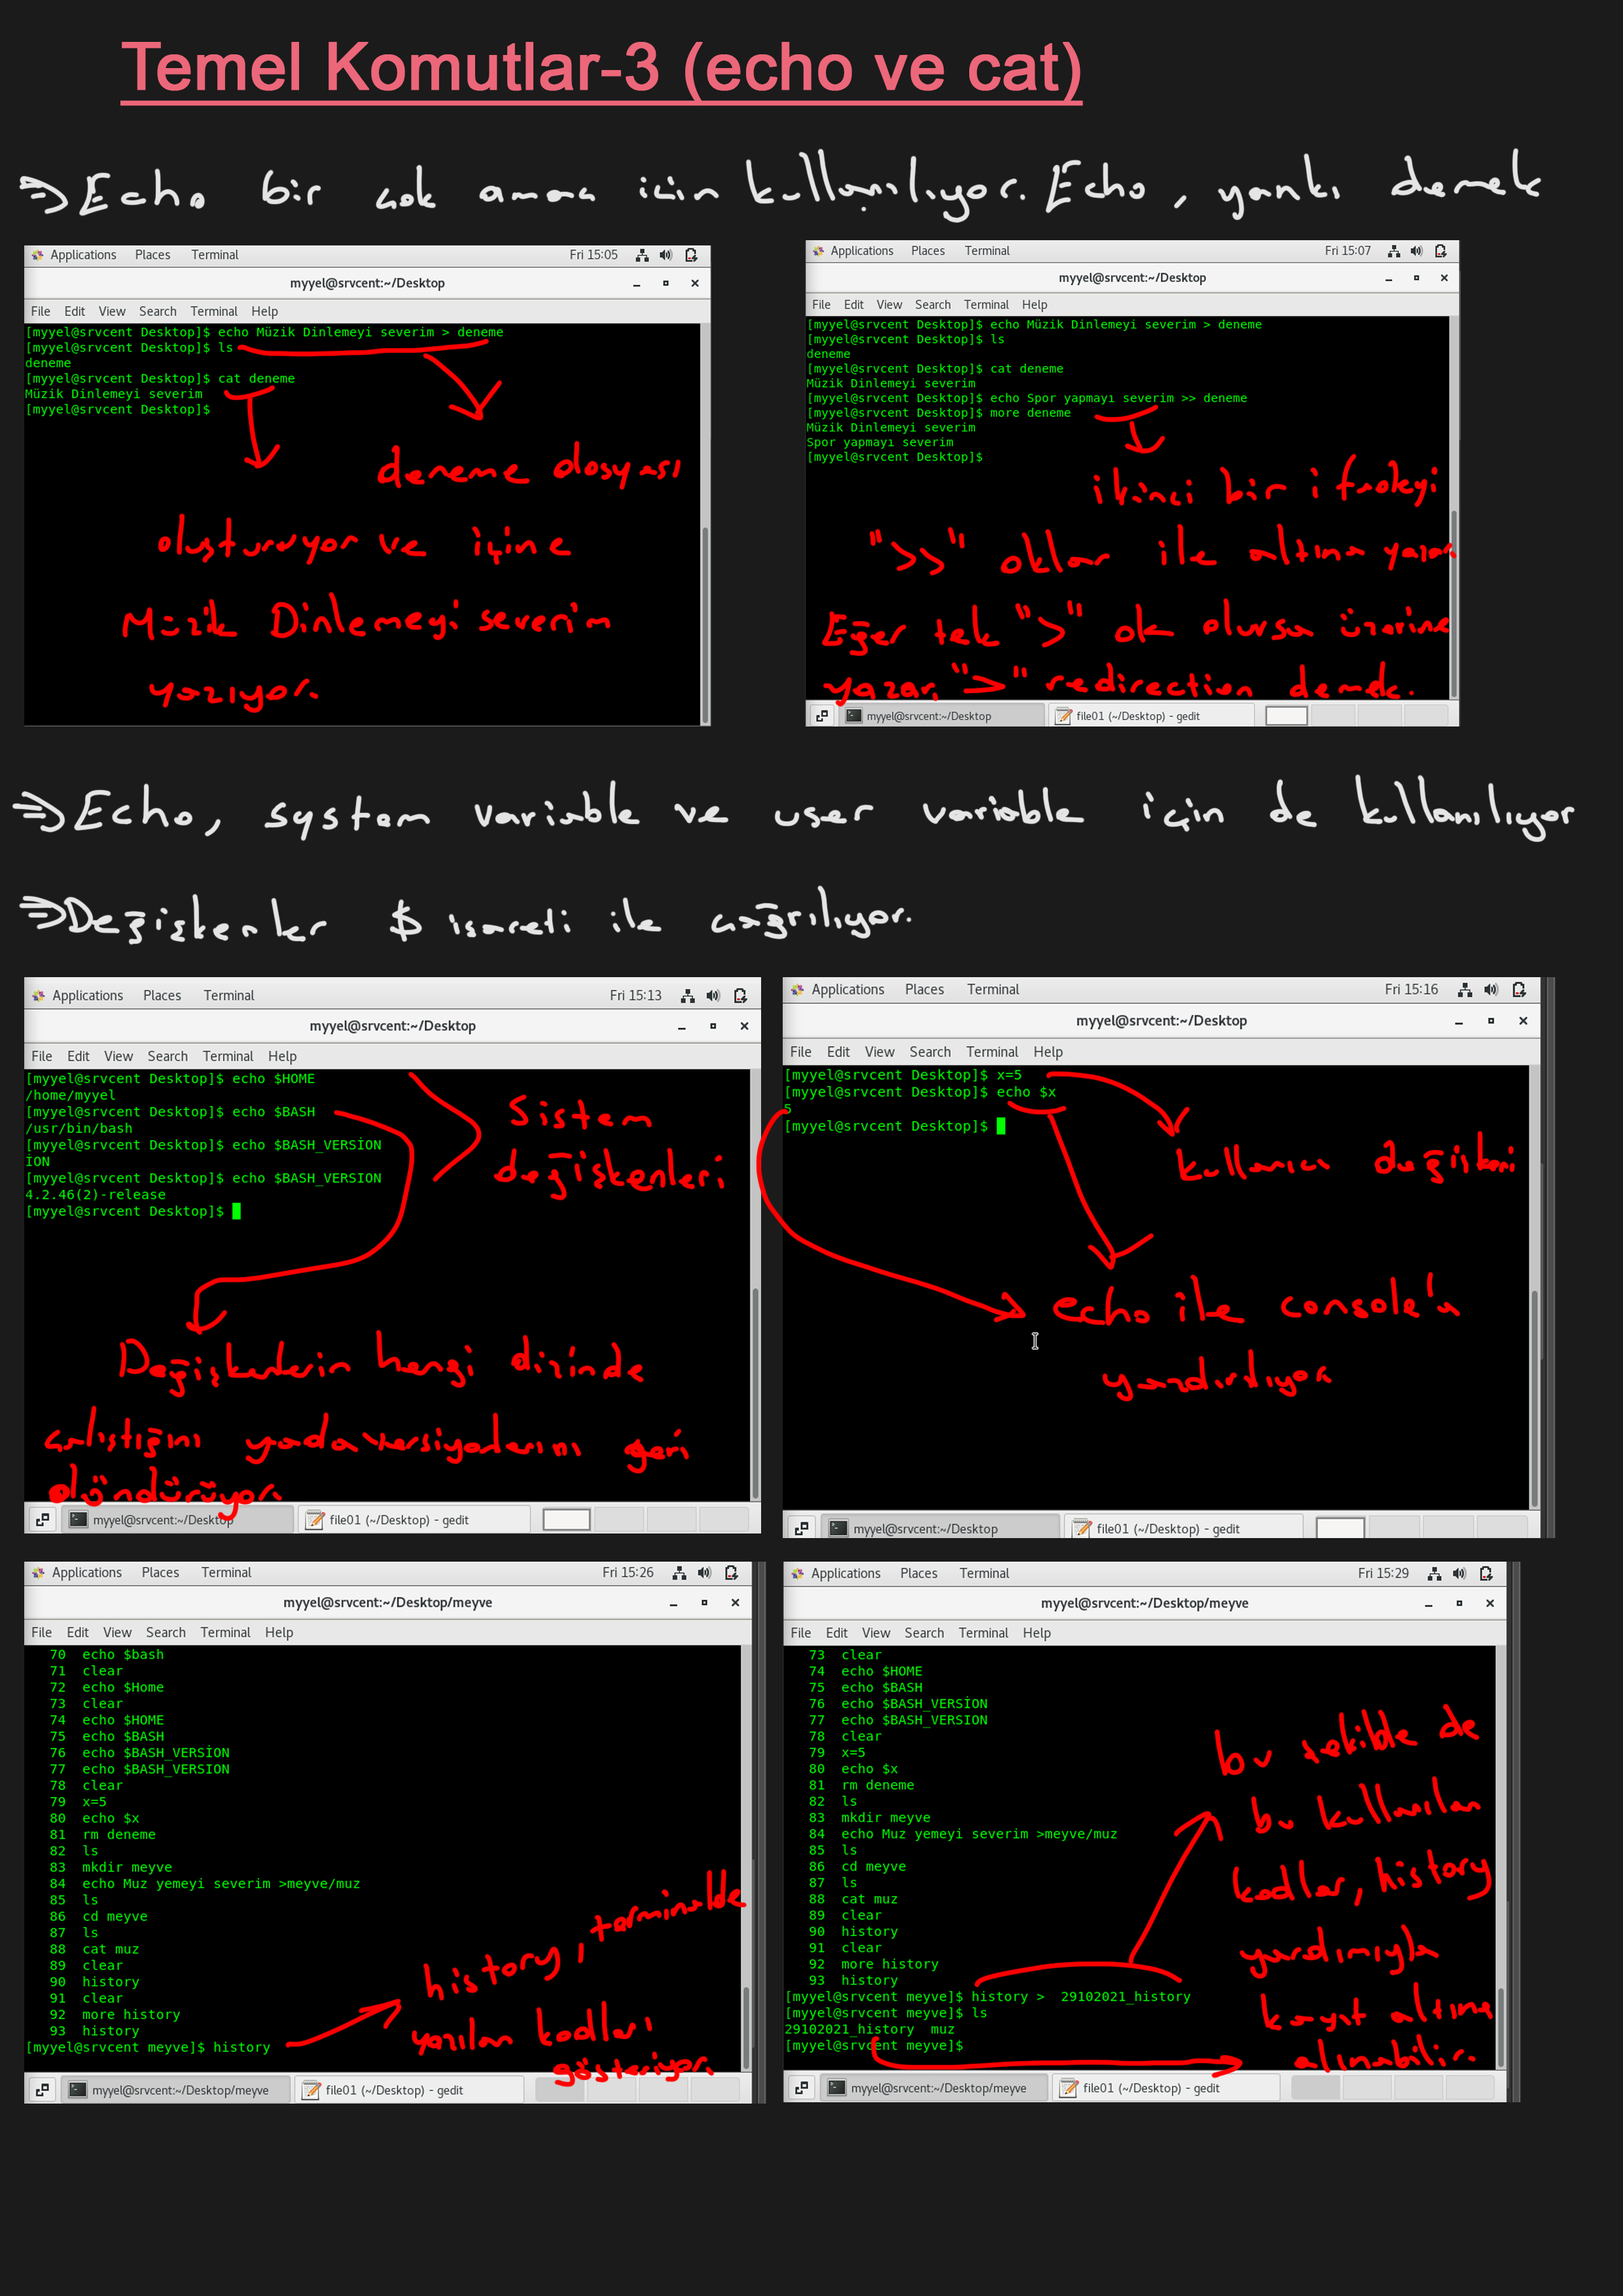 Temel Komutlar-3 (echo ve cat)
⇒Echo bir çok amaç için kullanılıyor. Echo, yankı demek
Applications Places Terminal Fri 15:05
myyel@srvcent:~/Desktop
File Edit View Search Terminal Help
[myyel@srvcent Desktop]$ echo Müzik Dinlemeyi severim > deneme
[myyel@srvcent Desktop]$ ls
deneme
[myyel@srvcent Desktop]$ cat deneme
Müzik Dinlemeyi severim
[myyel@srvcent Desktop]$
deneme dosyası
oluşturuyor ve içine
Müzik Dinlemeyi severim
yazıyor.
Applications Places Terminal Fri 15:07
myyel@srvcent:~/Desktop
File Edit View Search Terminal Help
[myyel@srvcent Desktop]$ echo Müzik Dinlemeyi severim > deneme
[myyel@srvcent Desktop]$ ls
deneme
[myyel@srvcent Desktop]$ cat deneme
Müzik Dinlemeyi severim
[myyel@srvcent Desktop]$ echo Spor yapmayı severim >> deneme
[myyel@srvcent Desktop]$ more deneme
Müzik Dinlemeyi severim
Spor yapmayı severim
[myyel@srvcent Desktop]$
ikinci bir ifadeyi
">>" oklar ile altına yazar
Eğer tek ">" ok olursa üzerine
yazar. ">" redirection demek.
myyel@srvcent:~/Desktop file01 (~/Desktop) - gedit
⇒Echo, system variable ve user variable için de kullanılıyor
⇒Değişkenler $ işareti ile çağrılıyor.
Applications Places Terminal Fri 15:13
myyel@srvcent:~/Desktop
File Edit View Search Terminal Help
[myyel@srvcent Desktop]$ echo $HOME
/home/myyel
[myyel@srvcent Desktop]$ echo $BASH
/usr/bin/bash
[myyel@srvcent Desktop]$ echo $BASH_VERSİON
İON
[myyel@srvcent Desktop]$ echo $BASH_VERSION
4.2.46(2)-release
[myyel@srvcent Desktop]$
Sistem
değişkenleri
Değişkenlerin hangi dizinde
çalıştığını yada versiyonlarını geri
döndürüyor.
myyel@srvcent:~/Desktop file01 (~/Desktop) - gedit
Applications Places Terminal Fri 15:16
myyel@srvcent:~/Desktop
File Edit View Search Terminal Help
[myyel@srvcent Desktop]$ x=5
[myyel@srvcent Desktop]$ echo $x
5
[myyel@srvcent Desktop]$
kullanıcı değişkeni
echo ile console'a
yazdırdıyor
myyel@srvcent:~/Desktop file01 (~/Desktop) - gedit
Applications Places Terminal Fri 15:26
myyel@srvcent:~/Desktop/meyve
File Edit View Search Terminal Help
70 echo $bash
71 clear
72 echo $Home
73 clear
74 echo $HOME
75 echo $BASH
76 echo $BASH_VERSİON
77 echo $BASH_VERSION
78 clear
79 x=5
80 echo $x
81 rm deneme
82 ls
83 mkdir meyve
84 echo Muz yemeyi severim >meyve/muz
85 ls
86 cd meyve
87 ls
88 cat muz
89 clear
90 history
91 clear
92 more history
93 history
[myyel@srvcent meyve]$ history
history, terminalde
yazılan kodları
gösteriyor.
myyel@srvcent:~/Desktop/meyve file01 (~/Desktop) - gedit
Applications Places Terminal Fri 15:29
myyel@srvcent:~/Desktop/meyve
File Edit View Search Terminal Help
73 clear
74 echo $HOME
75 echo $BASH
76 echo $BASH_VERSİON
77 echo $BASH_VERSION
78 clear
79 x=5
80 echo $x
81 rm deneme
82 ls
83 mkdir meyve
84 echo Muz yemeyi severim >meyve/muz
85 ls
86 cd meyve
87 ls
88 cat muz
89 clear
90 history
91 clear
92 more history
93 history
[myyel@srvcent meyve]$ history >  29102021_history
[myyel@srvcent meyve]$ ls
29102021_history muz
[myyel@srvcent meyve]$
bu şekilde de
bu kullanılan
kodlar, history
yardımıyla
kayıt altına
alınabilir.
myyel@srvcent:~/Desktop/meyve file01 (~/Desktop) - gedit